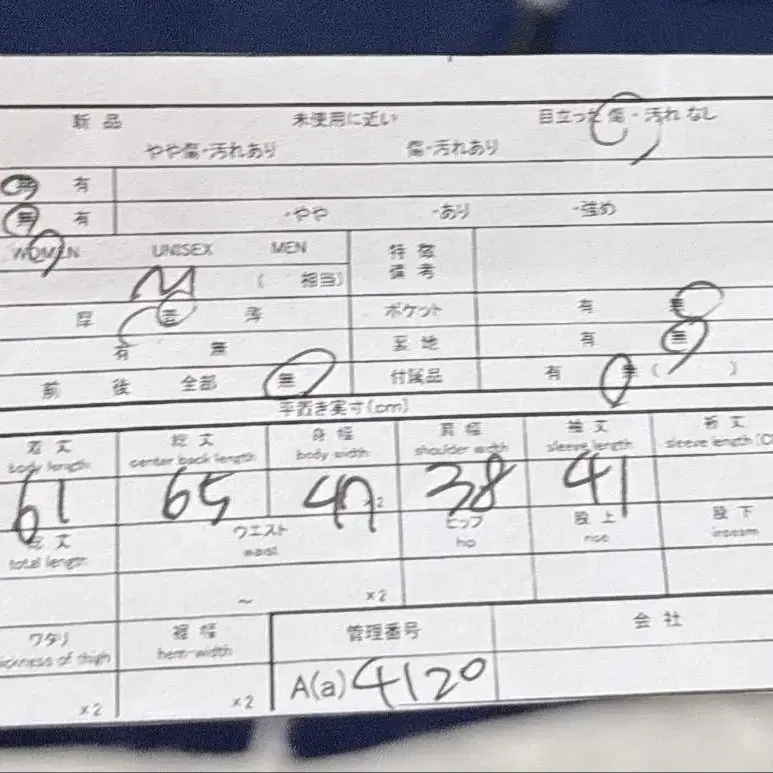 新品 未使用に近い 目立った傷・汚れなし
やや傷・汚れあり 傷・汚れあり
無 有
無 有 ・やや ・あり ・強め
WOMEN UNISEX MEN 特徴
備考
M ( 相当)
厚 普 薄 ポケット 有 無
有 無 裏地 有 無
前 後 全部 無 付属品 有 無 ( )
平置き実寸(cm)
着丈 総丈 身幅 肩幅 袖丈 裄丈
body length center back length body width shoulder width sleeve length sleeve length
61 65 x2 38 41
総丈 ウエスト ヒップ 股上 股下
total length waist hip rise inseam
~ x2
ワタリ 裾幅 管理番号 会社
thickness of thigh hem-width
x2 x2 A(a) 4120